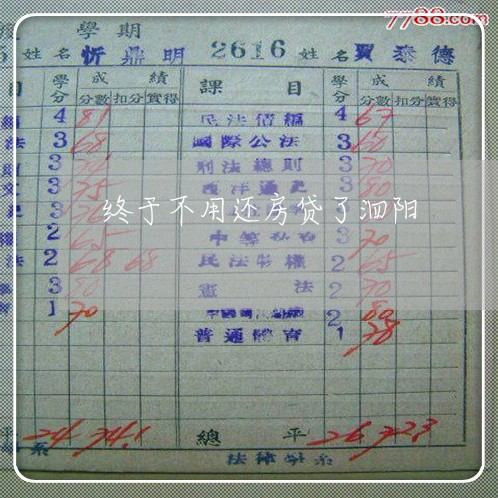 7788.com
學期
姓名 忻鼎明 2616 姓名 賈泰德
目 學分 成績 課目 學分 成績
分數 扣分 實得 分數 扣分 實得
4 81 民法債編 4 67
法 3 68 國際公法 3 60
3 刑法總則 3 70
3 75 西洋通史 3 80
終于不用還房貸了泗阳
2 65 3 70
法 2 68 68 民法物權 2 65
3 80 憲法 2 70
1 70 2 80
普通體育 1 78
平 24 74.1 總平 26 72.3
系 法律學系